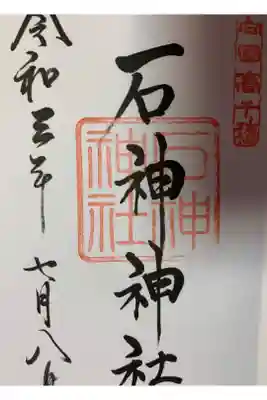 石神神社
石神
神社
令和三年 七月八日